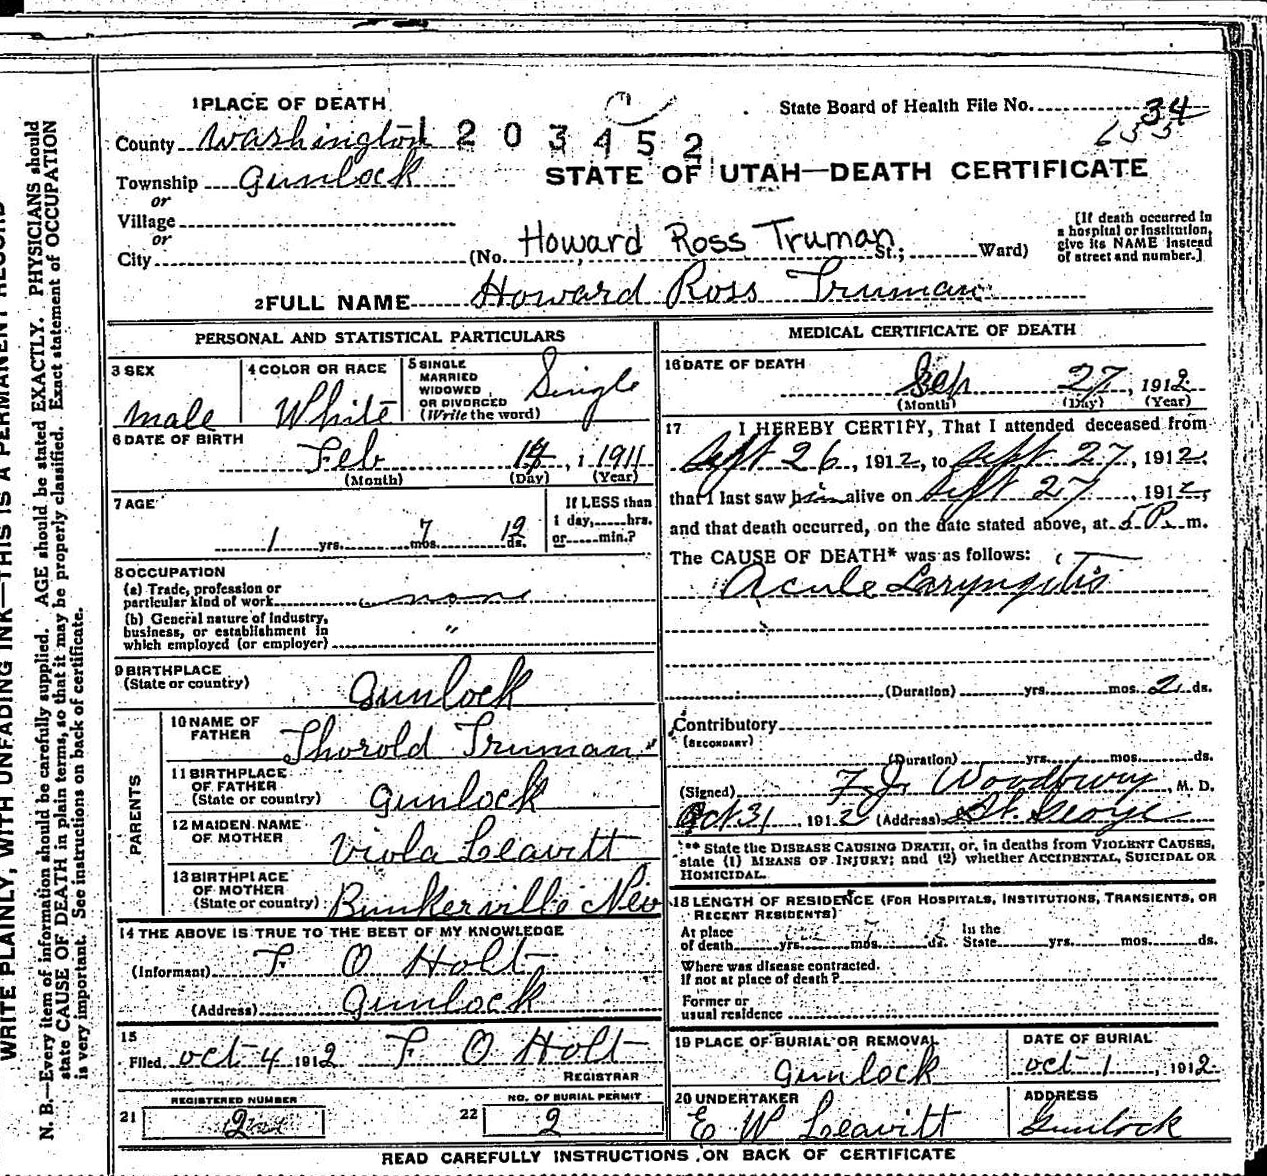 WRITE PLAINLY, WITH UNFADING INK—THIS IS A PERMANENT RECORD
N. B.—Every item of information should be carefully supplied. AGE should be stated EXACTLY. PHYSICIANS should
state CAUSE OF DEATH in plain terms, so that it may be properly classified. Exact statement of OCCUPATION
is very important. See instructions on back of certificate.
1 PLACE OF DEATH
State Board of Health File No. 34
County Washington 1203452
Township Gunlock
STATE OF UTAH—DEATH CERTIFICATE
or
Village
or
City (No. Howard Ross Truman St.; Ward)
[If death occurred in
a hospital or institution,
give its NAME instead
of street and number.]
2 FULL NAME Howard Ross Truman
PERSONAL AND STATISTICAL PARTICULARS
3 SEX
male
4 COLOR OR RACE
White
5 SINGLE
MARRIED
WIDOWED
OR DIVORCED
(Write the word)
Single
6 DATE OF BIRTH
Feb , 1 1911
(Month) (Day) (Year)
7 AGE
1 yrs. 7 mos. ds.
If LESS than
1 day, hrs.
or min.?
8 OCCUPATION
(a) Trade, profession or
particular kind of work none
(b) General nature of industry,
business, or establishment in
which employed (or employer) "
9 BIRTHPLACE
(State or country)
Gunlock
PARENTS
10 NAME OF
FATHER
Thorold Truman
11 BIRTHPLACE
OF FATHER
(State or country)
Gunlock
12 MAIDEN NAME
OF MOTHER
Viola Leavitt
13 BIRTHPLACE
OF MOTHER
(State or country)
Bunkerville Nev
14 THE ABOVE IS TRUE TO THE BEST OF MY KNOWLEDGE
(Informant) F O Holt
(Address) Gunlock
15
Filed Oct 4 1912 F O Holt
REGISTRAR
REGISTERED NUMBER
21 2
NO. OF BURIAL PERMIT
22 2
MEDICAL CERTIFICATE OF DEATH
16 DATE OF DEATH
Sep 27, 1912
(Month) (Day) (Year)
17 I HEREBY CERTIFY, That I attended deceased from
Sept 26, 1912, to Sept 27, 1912,
that I last saw him alive on Sept 27, 1912,
and that death occurred, on the date stated above, at 5 P. m.
The CAUSE OF DEATH* was as follows:
Acute Laryngitis
(Duration) yrs. mos. 2 ds.
Contributory
(SECONDARY)
(Duration) yrs. mos. ds.
(Signed) F. J. Woodbury, M. D.
Oct 31, 1912 (Address) St. George
** State the DISEASE CAUSING DEATH, or, in deaths from VIOLENT CAUSES,
state (1) MEANS OF INJURY; and (2) whether ACCIDENTAL, SUICIDAL OR
HOMICIDAL.
18 LENGTH OF RESIDENCE (FOR HOSPITALS, INSTITUTIONS, TRANSIENTS, OR
RECENT RESIDENTS)
At place
of death yrs. mos. ds.
In the
State yrs. mos. ds.
Where was disease contracted.
If not at place of death?
Former or
usual residence
19 PLACE OF BURIAL OR REMOVAL
Gunlock
DATE OF BURIAL
Oct 1, 1912.
20 UNDERTAKER
E W Leavitt
ADDRESS
Gunlock
READ CAREFULLY INSTRUCTIONS ON BACK OF CERTIFICATE